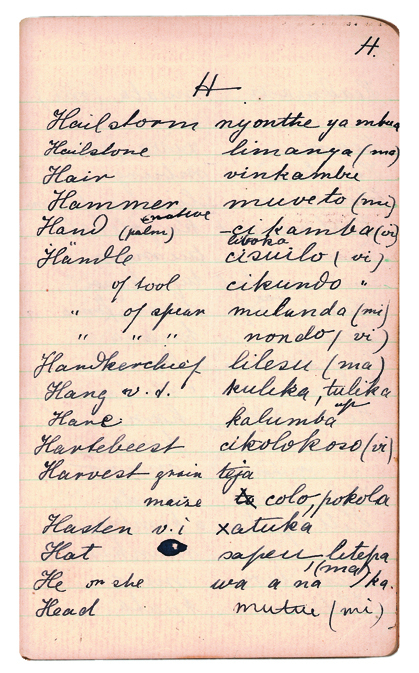 H.
H
Hailstorm nyonthe ya mbua
Hailstone limanya (ma)
Hair vinkambu
Hammer muveto (mi)
native
Hand (palm) - cikamba (vi)
liboka
Handle cisuilo (vi)
of tool cikundo "
" of spear mulunda (mi)
" " " nondo (vi)
Handkerchief lilesu (ma)
Hang v.t. kulika, tulika
up
Hare kalumba
Hartebeest cikolokoso (vi)
Harvest grain teja
maize colo, pokola
Hasten v.i xatuka
Hat sapeu, litepa
(ma)
He or she wa a na /ka.
Head mutue (mi)